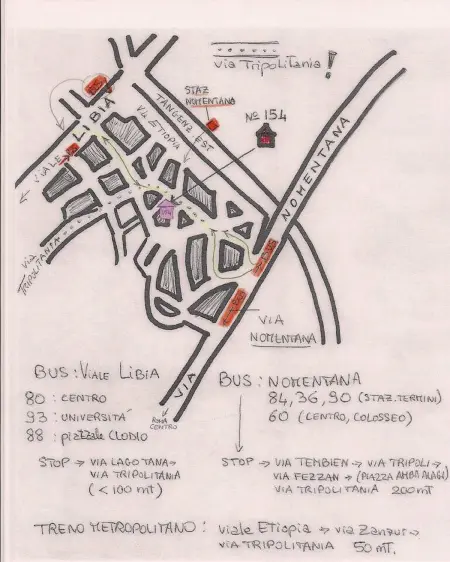 via Tripolitania !
STAZ
NOMENTANA
BUS
LIBIA
VIALE
TANGENZ. EST
VIA ETIOPIA
Nº 154
NOMENTANA
VIA
TRIPOLITANIA
BUS
BUS
VIA
NOMENTANA
VIA
ROMA
CENTRO
BUS: VIALE LIBIA
80 : CENTRO
93 : UNIVERSITÁ
88 : piazzale CLODIO
STOP → VIA LAGO TANA →
VIA TRIPOLITANIA
(< 100 mt)
BUS : NOMENTANA
84, 36, 90 (STAZ. TERMINI)
60 (CENTRO, COLOSSEO)
STOP → VIA TEMBIEN → VIA TRIPOLI →
VIA FEZZAN → (PIAZZA AMBA ALAGI)
VIA TRIPOLITANIA 200 mT
TRENO METROPOLITANO : viale Etiopia → via Zanzur →
via TRIPOLITANIA 50 mT.